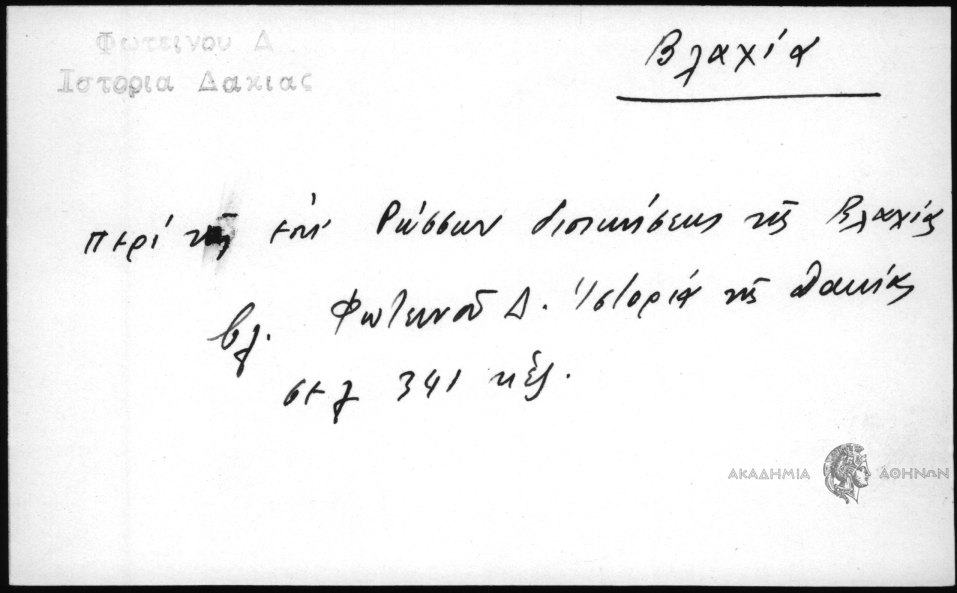 Φωτεινου Δ
Ιστορια Δακιας
Βλαχία
περί τῆς ἐπί Ρώσσων διοικήσεως τῆς Βλαχίας
βλ. Φωτεινοῦ Δ. Ἱστορία τῆς Δακίας
σελ 341 κἑξ.
ΑΚΑΔΗΜΙΑ ΑΘΗΝΩΝ